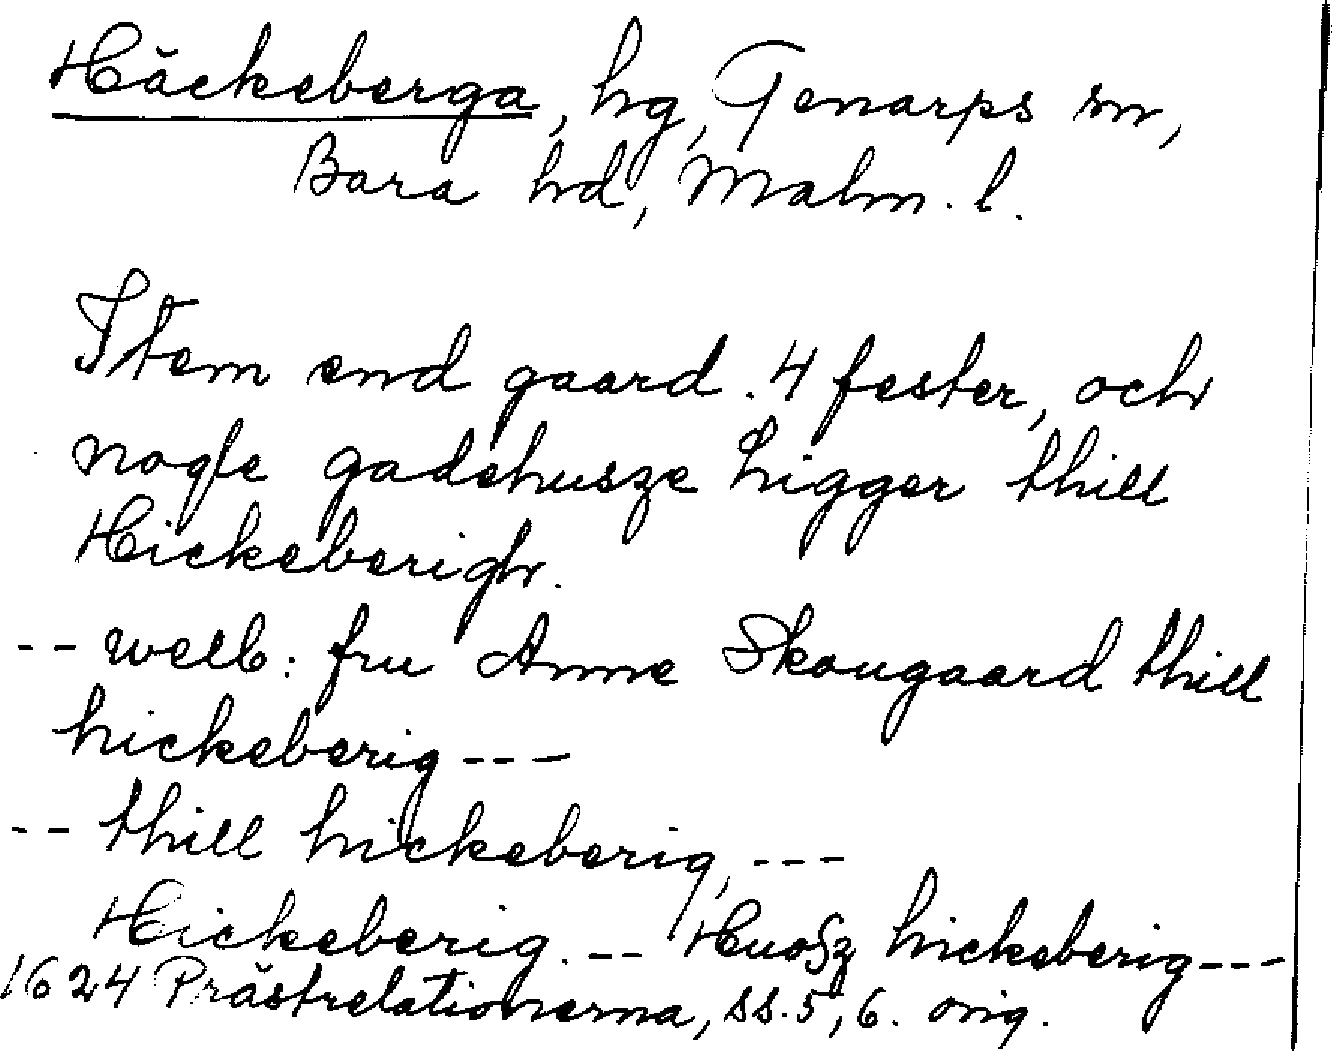 Häckeberga, hg, Genarps sn,
Bara hd, Malm. l.
Item end gaard. 4 fester, och
nogle gadehusze higger thill
Hickeberigh.
-- welb: fru Anne Skougaard thill
hickeberig ---
-- thill hickeberig, ---
Hickeberig. -- Huosz hickeberig ---
1624 Prästrelationerna, ss. 5, 6. orig.